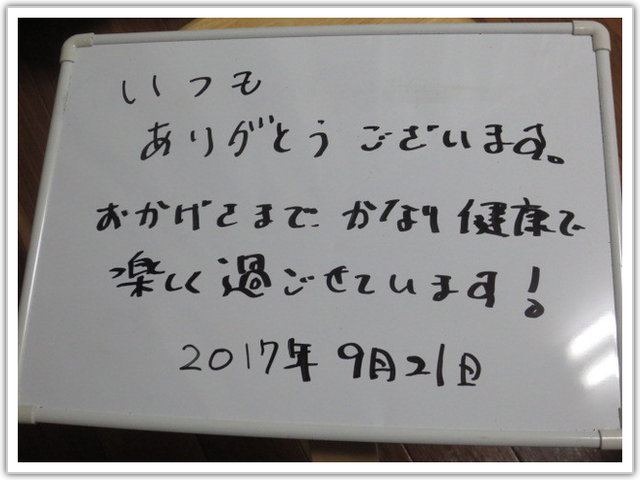 いつも
ありがとうございます。
おかげさまで かなり健康で
楽しく過ごせています!
2017年 9月21日